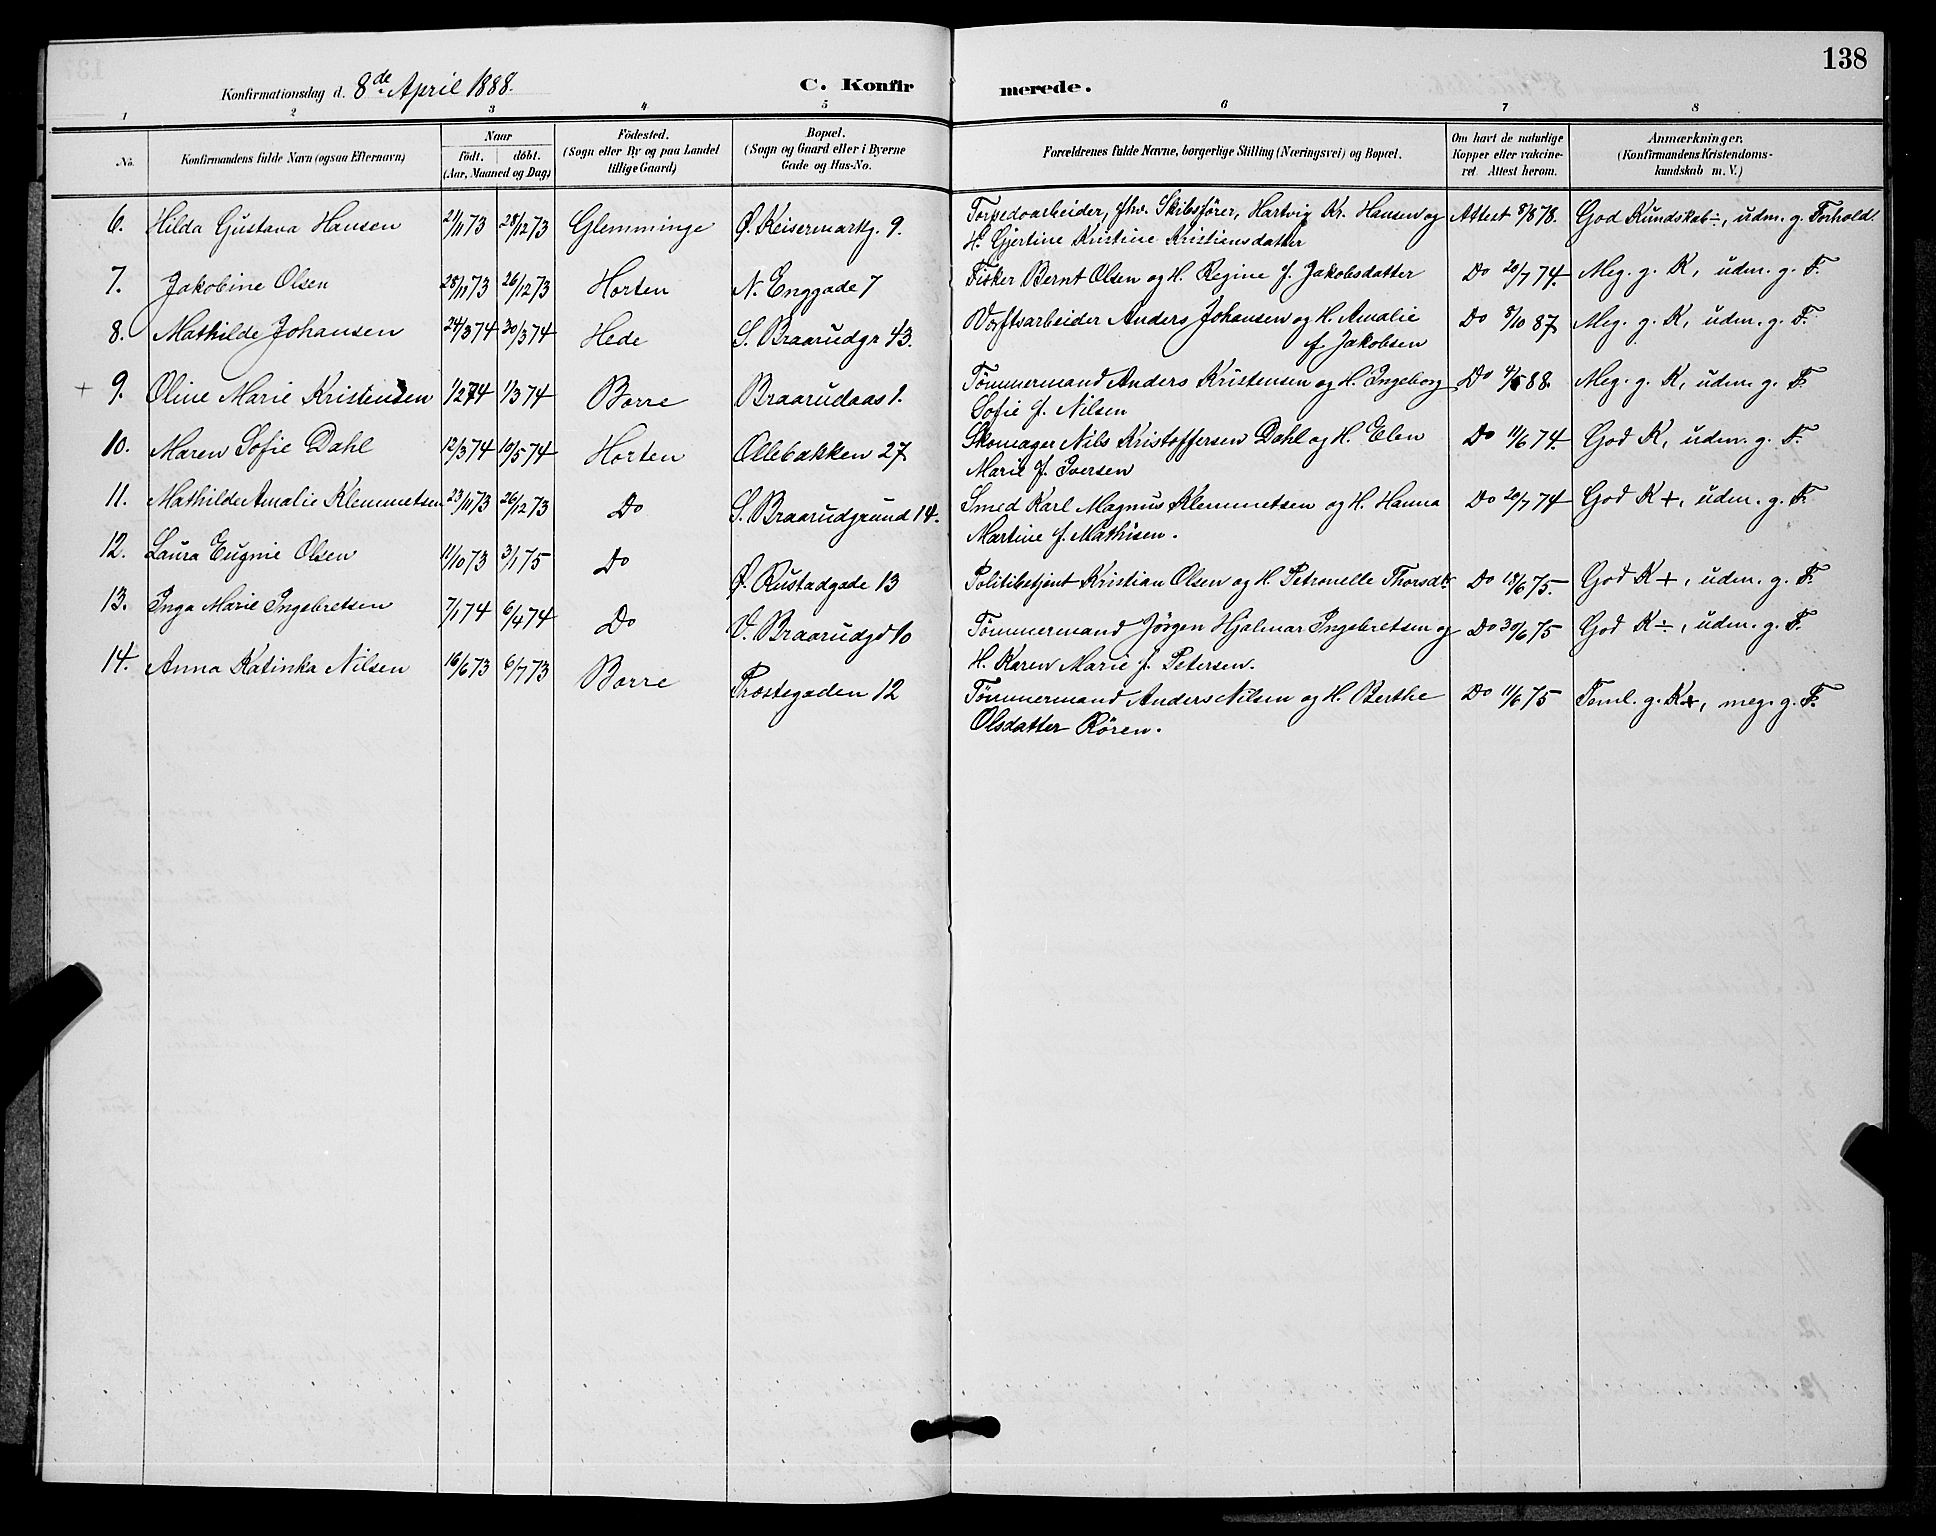 138
Konfirmationsdag d. 8de April 1888.
C. Konfirmerede.
1 2 3 4 5 6 7 8
No. Konfirmandens fulde Navn (ogsaa Efternavn) Naar födt. döbt. (Aar, Maaned og Dag) Födested. (Sogn eller By og paa Landet tillige Gaard) Bopæl. (Sogn og Gaard eller i Byerne Gade og Hus-No. Forældrenes fulde Navne, borgerlige Stilling (Næringsvei) og Bopæl. Om havt de naturlige Kopper eller vakcineret. Attest herom. Anmærkninger. (Konfirmandens Kristendomskundskab m. V.)
6. Hilda Gustava Hansen 21/11 73 28/12 73 Glemminge Ø. Keisermarkg. 9. Torpedoarbeider, fhv. Skibsfører, Hartvig Kr. Hansen og Attest 8/8 78. God Kundskab ÷, udm. g. Forhold
H. Gjertine Kristine Kristiansdatter
7. Jakobine Olsen 28/11 73 26/12 73 Horten N. Enggade 7 Fisker Bernt Olsen og H. Regine f. Jakobsdatter Do 20/7 74. Meg. g. K, udm. g. F.
8. Mathilde Johansen 24/3 74 30/3 74 Hede S. Braarudgr 43. Værftsarbeider Anders Johansen og H. Amalie Do 8/10 87 Meg. g. K, udm. g. F.
f. Jakobsen
+ 9. Oline Marie Kristensen 1/2 74 1/3 74 Borre Braarudaas 1. Tømmermand Anders Kristensen og H. Ingeborg Do 4/5 88. Meg. g. K, udm. g. F.
Sofie f. Nilsen
10. Maren Sofie Dahl 12/3 74 10/5 74 Horten Ollebakken 27 Skomager Nils Kristoffersen Dahl og H. Elen Do 11/6 74. God K, udm. g. F.
Marie f. Iversen
11. Mathilde Amalie Klemmetsen 23/11 73 26/12 73 Do S. Braarudgrund 14. Smed Karl Magnus Klemmetsen og H. Hanna Do 20/7 74 God K +, udm. g. F.
Martine f. Mathisen.
12. Laura Eugnie Olsen 11/10 73 3/1 75 Do Ø. Rustadgade 13 Politibetjent Kristian Olsen og H. Petronelle Thorsdt. Do 18/6 75. God K +, udm. g. F.
13. Inga Marie Ingebretsen 7/1 74 6/4 74 Do V. Braarudgd 10 Tømmermand Jørgen Hjalmar Ingebretsen og Do 30/6 75 God K ÷, udm. g. F.
H. Karen Marie f. Petersen.
14. Anna Katinka Nilsen 16/6 73 6/7 73 Borre Prostegaden 12 Tømmermand Anders Nilsen og H. Berthe Do 11/6 75 Teml. g. K+, meg. g. F.
Olsdatter Røren.